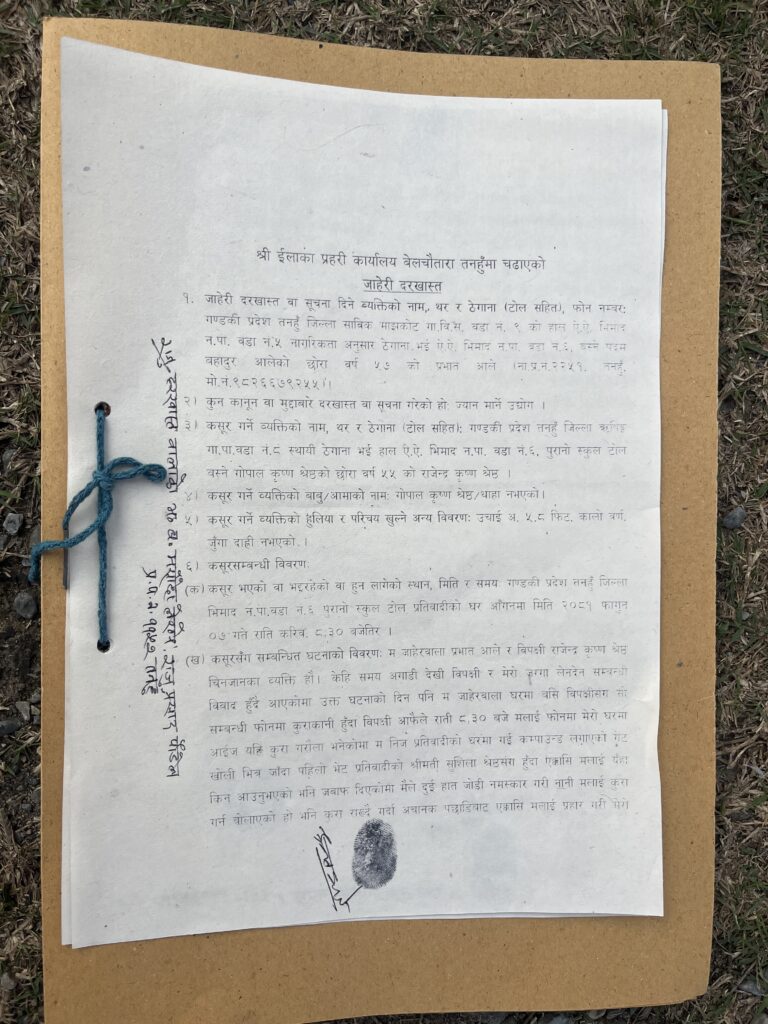 श्री ईलाका प्रहरी कार्यालय बेलचौतारा तनहुँमा चढाएको
जाहेरी दरखास्त
१. जाहेरी दरखास्त वा सूचना दिने व्यक्तिको नाम, थर र ठेगाना (टोल सहित), फोन नम्बर:
गण्डकी प्रदेश तनहुँ जिल्ला साविक माझकोट गा.वि.स. वडा नं. ९ को हाल ऐ.ऐ. भिमाद
न.पा. वडा नं.५ नागरिकता अनुसार ठेगाना भई ऐ.ऐ. भिमाद न.पा. वडा नं.६, बस्ने पदम
बहादुर आलेको छोरा वर्ष ५७ को प्रभात आले (ना.प्र.न.२२५१, तनहुँ,
मो.न.९८२६६७९२५५)।
२) कुन कानून वा मुद्दाबारे दरखास्त वा सूचना गरेको हो: ज्यान मार्ने उद्योग ।
३) कसूर गर्ने व्यक्तिको नाम, थर र ठेगाना (टोल सहित): गण्डकी प्रदेश तनहुँ जिल्ला ऋषिङ्ग
गा.पा.वडा नं.८ स्थायी ठेगाना भई हाल ऐ.ऐ. भिमाद न.पा. वडा नं.६, पुरानो स्कुल टोल
बस्ने गोपाल कृष्ण श्रेष्ठको छोरा वर्ष ५५ को राजेन्द्र कृष्ण श्रेष्ठ ।
४) कसूर गर्ने व्यक्तिको बाबु/आमाको नाम: गोपाल कृष्ण श्रेष्ठ/थाहा नभएको।
५) कसूर गर्ने व्यक्तिको हुलिया र परिचय खुल्ने अन्य विवरण: उचाई अ. ५.८ फिट, कालो वर्ण,
जुँगा दाह्री नभएको. ।
६) कसूरसम्बन्धी विवरण:
(क) कसूर भएको वा भइरहेको वा हुन लागेको स्थान, मिति र समय गण्डकी प्रदेश तनहुँ जिल्ला
भिमाद न.पा.वडा नं.६ पुरानो स्कुल टोल प्रतिवादीको घर आँगनमा मिति २०८१ फागुन
०७ गते राति करिव ८.३० बजेतिर ।
(ख) कसूरसँग सम्बन्धित घटनाको विवरण: म जाहेरवाला प्रभात आले र विपक्षी राजेन्द्र कृष्ण श्रेष्ठ
चिनजानका व्यक्ति हौं। केहि समय अगाडी देखी विपक्षी र मेरो जग्गा लेनदेन सम्बन्धी
विवाद हुँदै आएकोमा उक्त घटनाको दिन पनि म जाहेरवाला घरमा बसि विपक्षीसंग सो
सम्बन्धी फोनमा कुराकानी हुँदा विपक्षी आफैले राती ८.३० बजे मलाई फोनमा मेरो घरमा
आईज यहि कुरा गरौला भनेकोमा म निज प्रतिवादीको घरमा गई कम्पाउन्ड लगाएको गेट
खोली भित्र जाँदा पहिली भेट प्रतिवादीको श्रीमती सुशिला श्रेष्ठसंग हुँदा एक्कासि मलाई यहाँ
किन आउनुभएको भनि जवाफ दिएकोमा मैले दुई हात जोडी नमस्कार गरी नानी मलाई कुरा
गर्न बोलाएको हो भनि कुरा राख्दै गर्दा अचानक पछाडिबाट एक्कासि मलाई प्रहार गरी मेरो